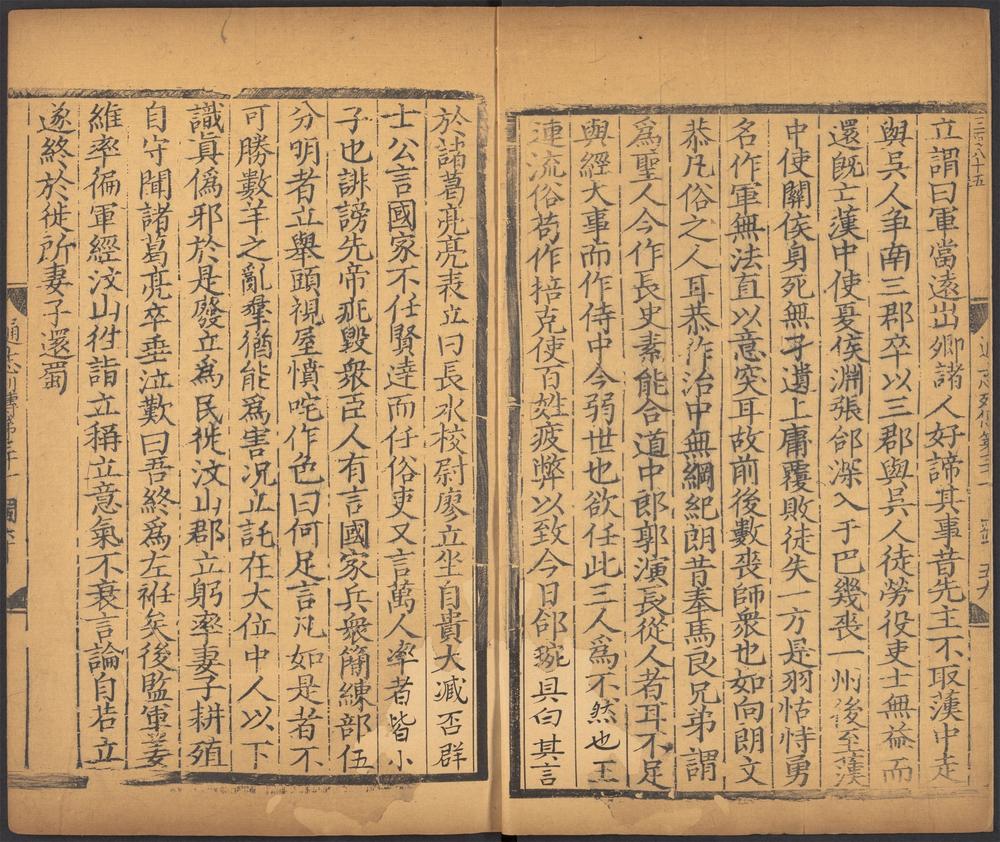 立謂曰軍當遠出卿諸人好諦其事昔先主不取漢中走
與吳人爭南三郡卒以三郡與吳人徒勞役吏士無益而
還旣亡漢中使夏侯淵張郃深入于巴幾喪一州後至漢
中使關侯身死無孑遺上庸覆敗徒失一方是羽怙恃勇
名作軍無法直以意突耳故前後數喪師衆也如向朗文
恭凡俗之人耳恭作治中無綱紀朗昔奉馬良兄弟謂
爲聖人今作長史素能合道中郎郭演長從人者耳不足
與經大事而作侍中今弱世也欲任此三人爲不然也王
連流俗苟作掊克使百姓疲弊以致今日郃琬具白其言
於諸葛亮亮表立曰長水校尉廖立坐自貴大臧否群
士公言國家不任賢達而任俗吏又言萬人率者皆小
子也誹謗先帝疵毀衆臣人有言國家兵衆簡練部伍
分明者立舉頭視屋憤咤作色曰何足言凡如是者不
可勝數羊之亂羣猶能爲害况立託在大位中人以下
識真僞邪於是廢立爲民徙汶山郡立躬率妻子耕殖
自守聞諸葛亮卒垂泣歎曰吾終爲左袵矣後監軍姜
維率徧軍經汶山徃詣立稱立意氣不衰言論自若立
遂終於徙所妻子還蜀